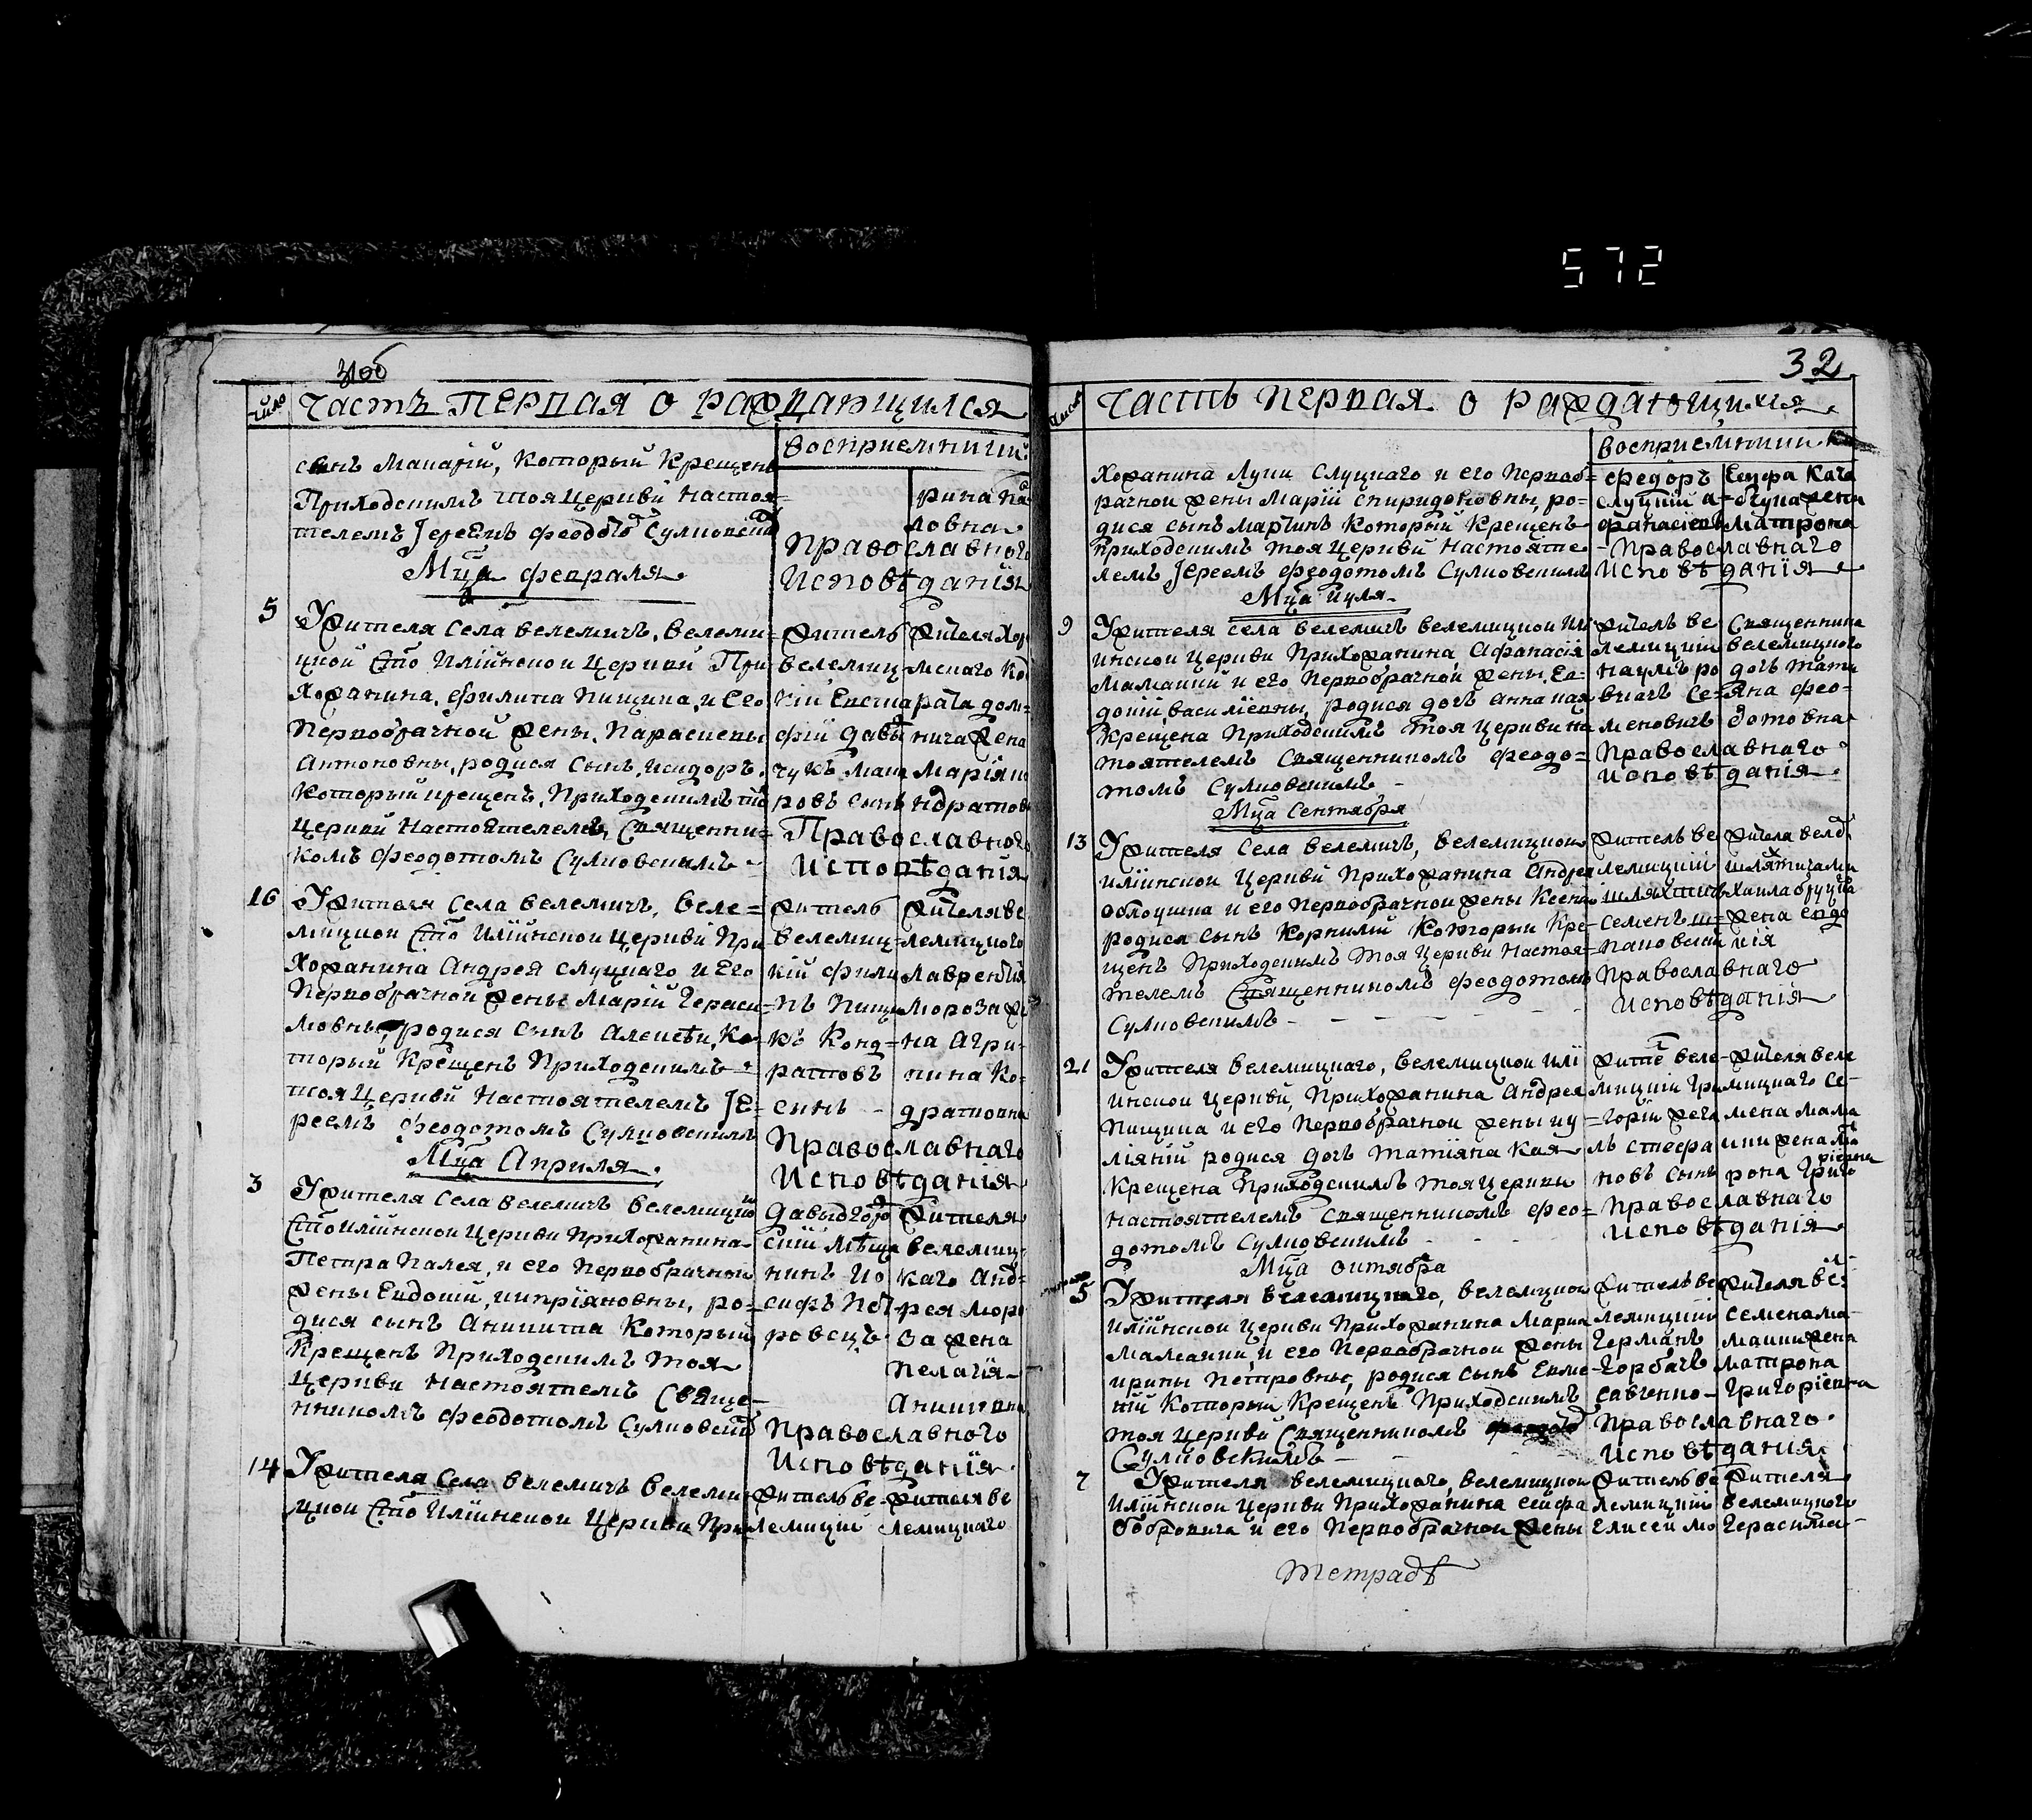 572
31об
число
Часть первая о раждающихся
восприемники
сынъ Макарій, который крещенъ
Приходскимъ тоя Церкви настоя=
телемъ Іереемъ Феодотомъ Сулковским
рина Па
ловна
Православного
Исповѣданія
Мца февраля
5
У жителя села велемичъ, велеми=
цкой Сто Иліинской Церкви При
хожанина, Филипа Пищика, и Его
Первобрачной жены, Параскевы
Антоновны, родися сынъ, Исидоръ,
который крещенъ, Приходскимъ тоя
Церкви Настоятелемъ, Священни=
комъ Феодотомъ Сулковскимъ -
житель
велемиц
кій Евста
фій Давы
чукъ Мака
ровъ сынъ
жителя Хор
мскаго Код
рата дом=
нича жена
Марія ко
ндратов
Православного
Исповѣданія
16
У жителя Села велемичъ, веле=
мицкои Сто Иліинскои Церкви При
хожанина Андрея слуцкаго и Его
Первобрачной жены Маріи Гераси
мовны, родися сынъ Алексѣи, Ко
торый крещенъ Приходскимъ
тоя Церкви Настоятелемъ Іе=
реемъ Феодотомъ Сулковскимъ
житель
велемиц=
кій фили
пъ Пищи
къ Конд=
ратовъ
сынъ -
жителя ве
лемицкого
лаврентія
мороза же
на Агри=
пина Ко=
дратовна
Православнаго
Исповѣданія
Мца Априля
3
У жителя Села велемичъ велемицкой
Сто Иліинскои Церкви Прихожанина
Петра Палея, и его Первобрачной
жены Евдокіи, киприяновны, ро=
дися сынъ Аникита который
крещенъ Приходскимъ тоя
Церкви Настоятелемъ Свяще=
нникомъ Феодотомъ Сулковским
Давыдгоро
скій мѣща
нинъ Ио
сифъ Пет
ровецъ
жителя
велемиц=
каго Анд=
рея моро
за жена
Пелагія
Аникивна
Православного
Исповѣданія
14
У жителя Села велемичъ велеми
цкои Сто Иліинскои Церкви При
житель ве=
лемицкій
жителя ве
лемицкаго
32
число
Часть первая о раждающихся
восприемники
хожанина Луки Слуцкаго и его Первоб=
рачной жены Маріи спиридоновны, ро=
дися сынъ Мартинъ который крещенъ
приходскимъ тоя Церкви Настояте
лемъ Іереемъ Феодотомъ Сулковскимъ
федоръ
Слуцкій а=
фанасіевъ
Матрона
- Православнаго
Исповѣданія
Мца иуля
9
У жителя села велемичъ велемицкои Илі
инскои Церкви Прихожанина, Афанасія
Мамаики и его Первобрачной жены, Ев=
докіи, василіевны, родися дочь Анна кая
крещена Приходскимъ тоя Церкви на
тоятелемъ Священникомъ феодо=
томъ Сулковскимъ -
житель ве
лемицкій
наумъ ро
вчачъ се=
меновичъ
Священника
велемицкого
дочь тати
яна фео=
дотовна
Православнаго
исповѣданія
Мца Сентября
13
У жителя Села велемичъ, велемицкои
иліинскои Церкви Прихожанина Андрея
Облоушка и его Первобрачной жены Ксени
родися сынъ Корнилій который кре=
щенъ Приходскимъ тоя Церкви Настоя=
телемъ Священникомъ феодотомъ
Сулковскимъ -
житель ве
лемицкій
шляхтичъ
Семенъ ш=
пановскій
жителя вело
шляхтича ми
хаила
жена евдо
кія
Православнаго
исповѣданія
21
У жителя велемицкаго, велемицкои илі
инскои Церкви, Прихожанина Андрея
Пищика и его Первобрачной жены иу=
ліяніи родися дочь татіяна кая
крещена Приходскимъ тоя Церкви
настоятелемъ священникомъ фео=
дотомъ Сулковскимъ -
жите веле=
мицкій гри
горій жега
лъ стефа
новъ сынъ
жителя веле
мицкаго се=
мена мама
ики жена мат
рона григо
ріевна
Православнаго
исповѣданія
Мца октября
5
У жителя велемицкаго, велемицкои
иліинскои Церкви Прихожанина Марка
мамаики, и его Первобрачной жены
ирины Петровны, родися сынъ Евме=
ній который крещенъ Приходскимъ
тоя Церкви Священникомъ
Сулковскимъ -
житель ве
лемицкій
германъ
горбачъ
савенко -
жителя ве
семена ма=
маики жена
матрона
григоріевна
Православнаго
исповѣданія
7
У жителя велемицкого, велемицкои
иліинскои Церкви Прихожанина есифа
бобровича и его Первобрачной жены
житель ве
лемицкій
Елисей мо
жителя
велемицкого
герасима=
тетрадь